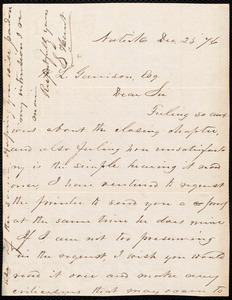 Natick Dec 25 '76
L. Garrison, Esq
Dear Sir
Feeling so anx
ious about the closing chapter,
and also feeling how unsatisfacto
ry is the simple hearing it read
once, I have ventured to request
the printer to send you a proof
at the same time he does mine
If I am not too presuming
in the request, I wish you would
read it over and make any
criticisms that may occur to
you will pardon
my intrusion once
more
Respectfully yours